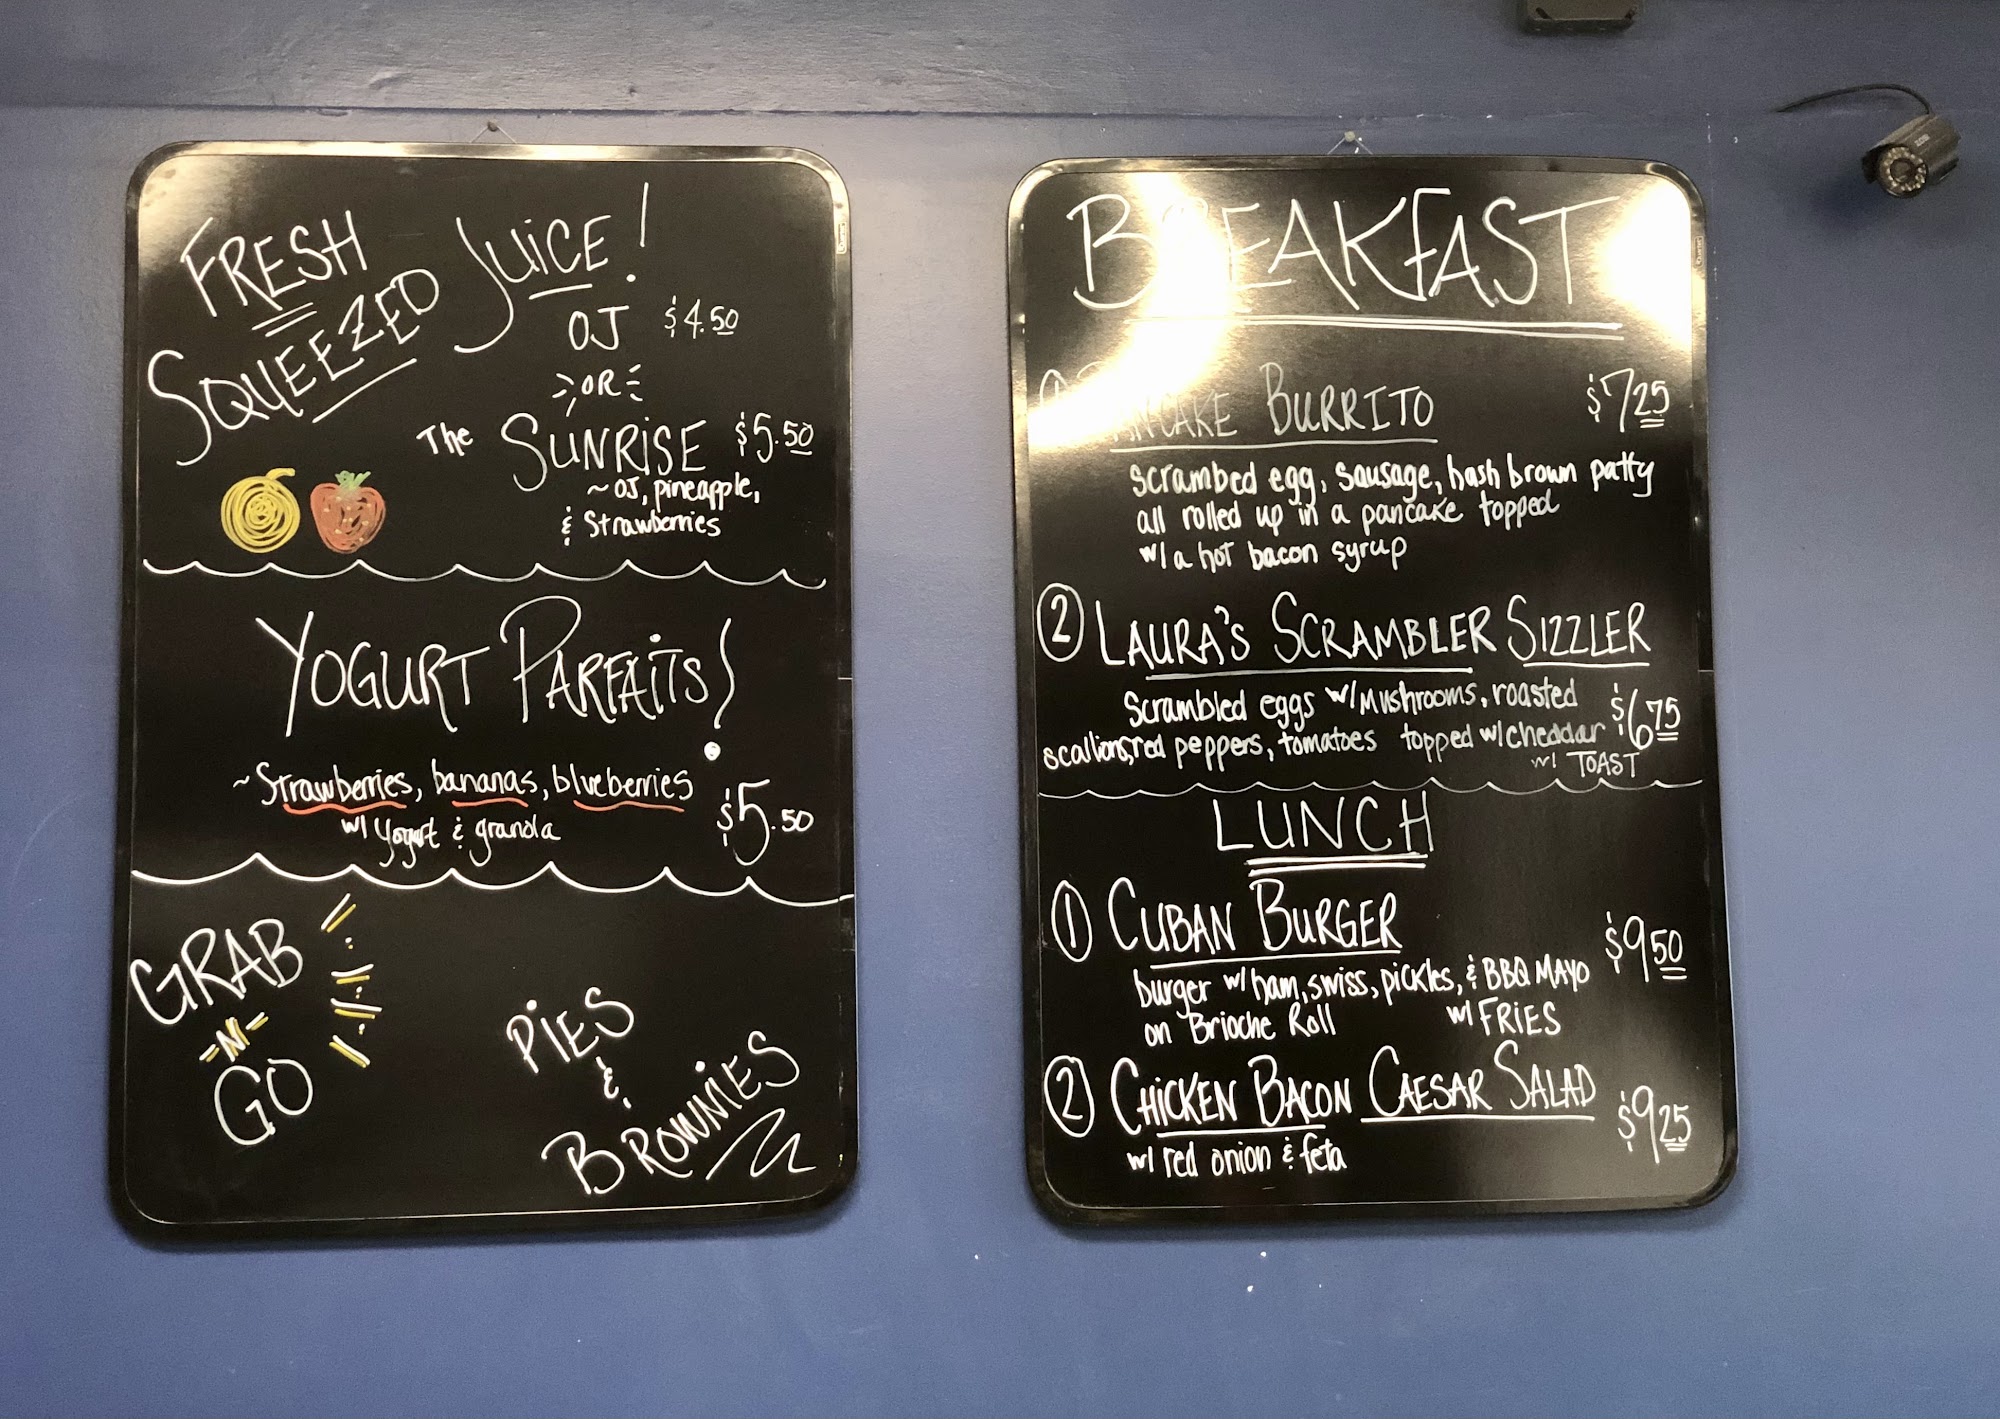 FRESH
SQUEEZED JUICE!
OJ $4.50
OR
The SUNRISE $5.50
~OJ, pineapple,
& Strawberries
YOGURT PARFAITS!
~Strawberries, bananas, blueberries
w/ Yogurt & granola $5.50
GRAB
-N-
GO
PIES
&
BROWNIES
BREAKFAST
① PANCAKE BURRITO $7.25
Scrambed egg, sausage, hash brown patty
all rolled up in a pancake topped
w/ a hot bacon syrup
② LAURA'S SCRAMBLER SIZZLER
Scrambled eggs w/ Mushrooms, roasted $6.75
scallions, red peppers, tomatoes topped w/ cheddar
w/ TOAST
LUNCH
① CUBAN BURGER $9.50
burger w/ ham, swiss, pickles, & BBQ MAYO
on Brioche Roll w/ FRIES
② CHICKEN BACON CAESAR SALAD $9.25
w/ red onion & feta